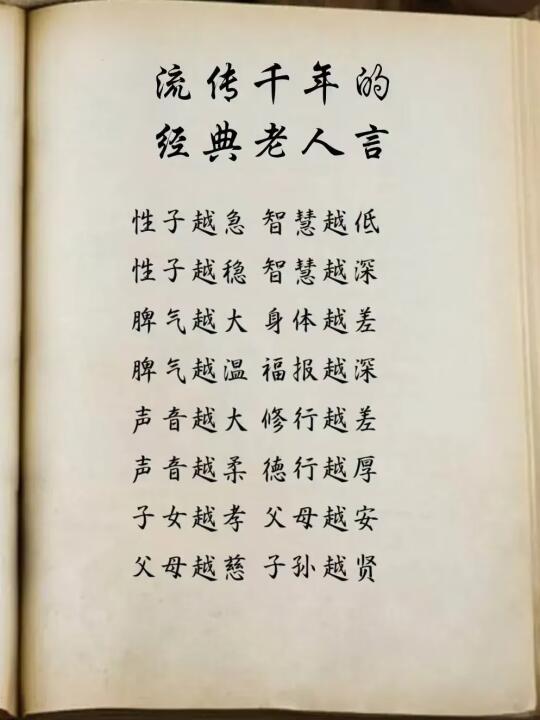 流传千年的
经典老人言
性子越急 智慧越低
性子越稳 智慧越深
脾气越大 身体越差
脾气越温 福报越深
声音越大 修行越差
声音越柔 德行越厚
子女越孝 父母越安
父母越慈 子孙越贤